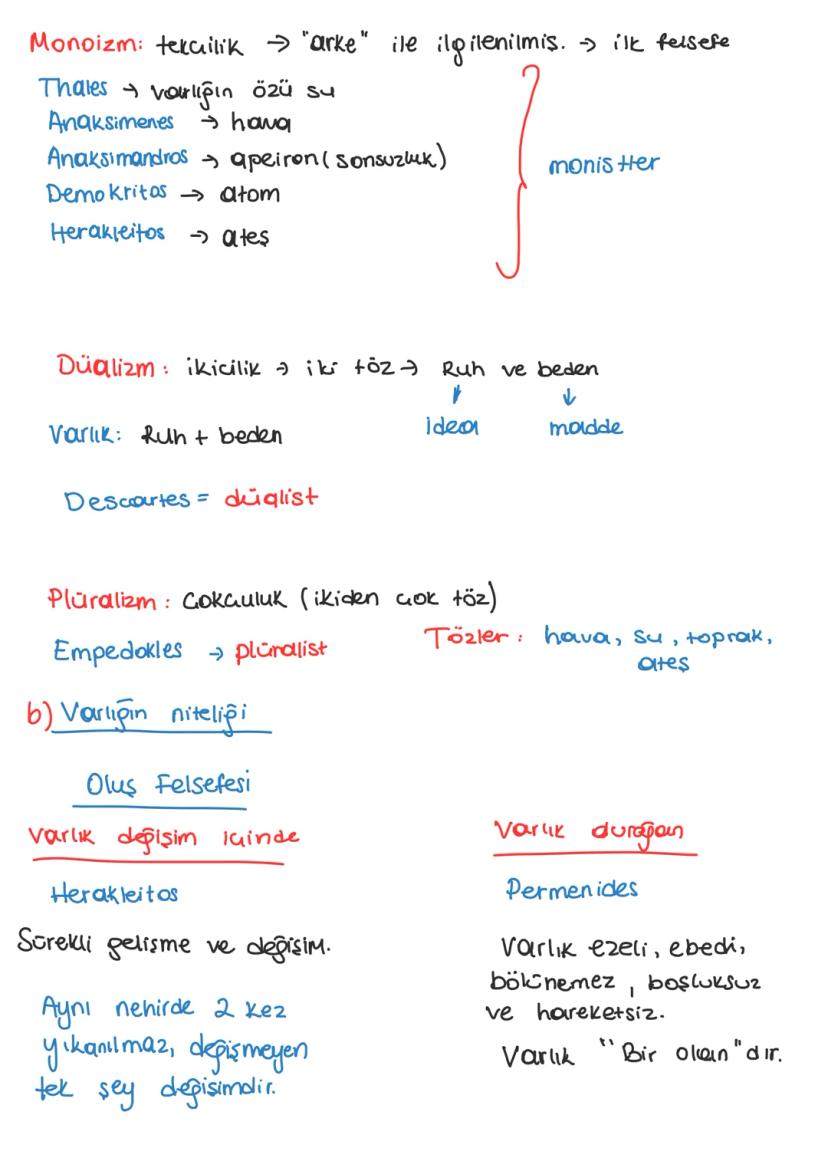 Monoizm: tekcilik → "arke" ile ilgilenilmiş. → ilk felsefe
Thales → varlığın özü su
Anaksimenes → hava
Anaksimandros → apeiron (sonsuzluk)
monistler
Demokritos → atom
Herakleitos → ateş
Düalizm: ikicilik → iki töz → Ruh ve beden
idea madde
Varlık: Ruh + beden
Descartes = düalist
Plüralizm: çokçuluk (ikiden çok töz)
Empedokles → plüralist
Tözler: hava, su, toprak,
ateş
b) Varlığın niteliği
Oluş Felsefesi
Varlık değişim içinde
Herakleitos
Sürekli gelişme ve değişim.
Aynı nehirde 2 kez
yıkanılmaz, değişmeyen
tek şey değişimdir.
Varlık durağan
Permenides
Varlık ezeli, ebedi,
bölünemez, boşluksuz
ve hareketsiz.
Varlık "Bir olan"dır.